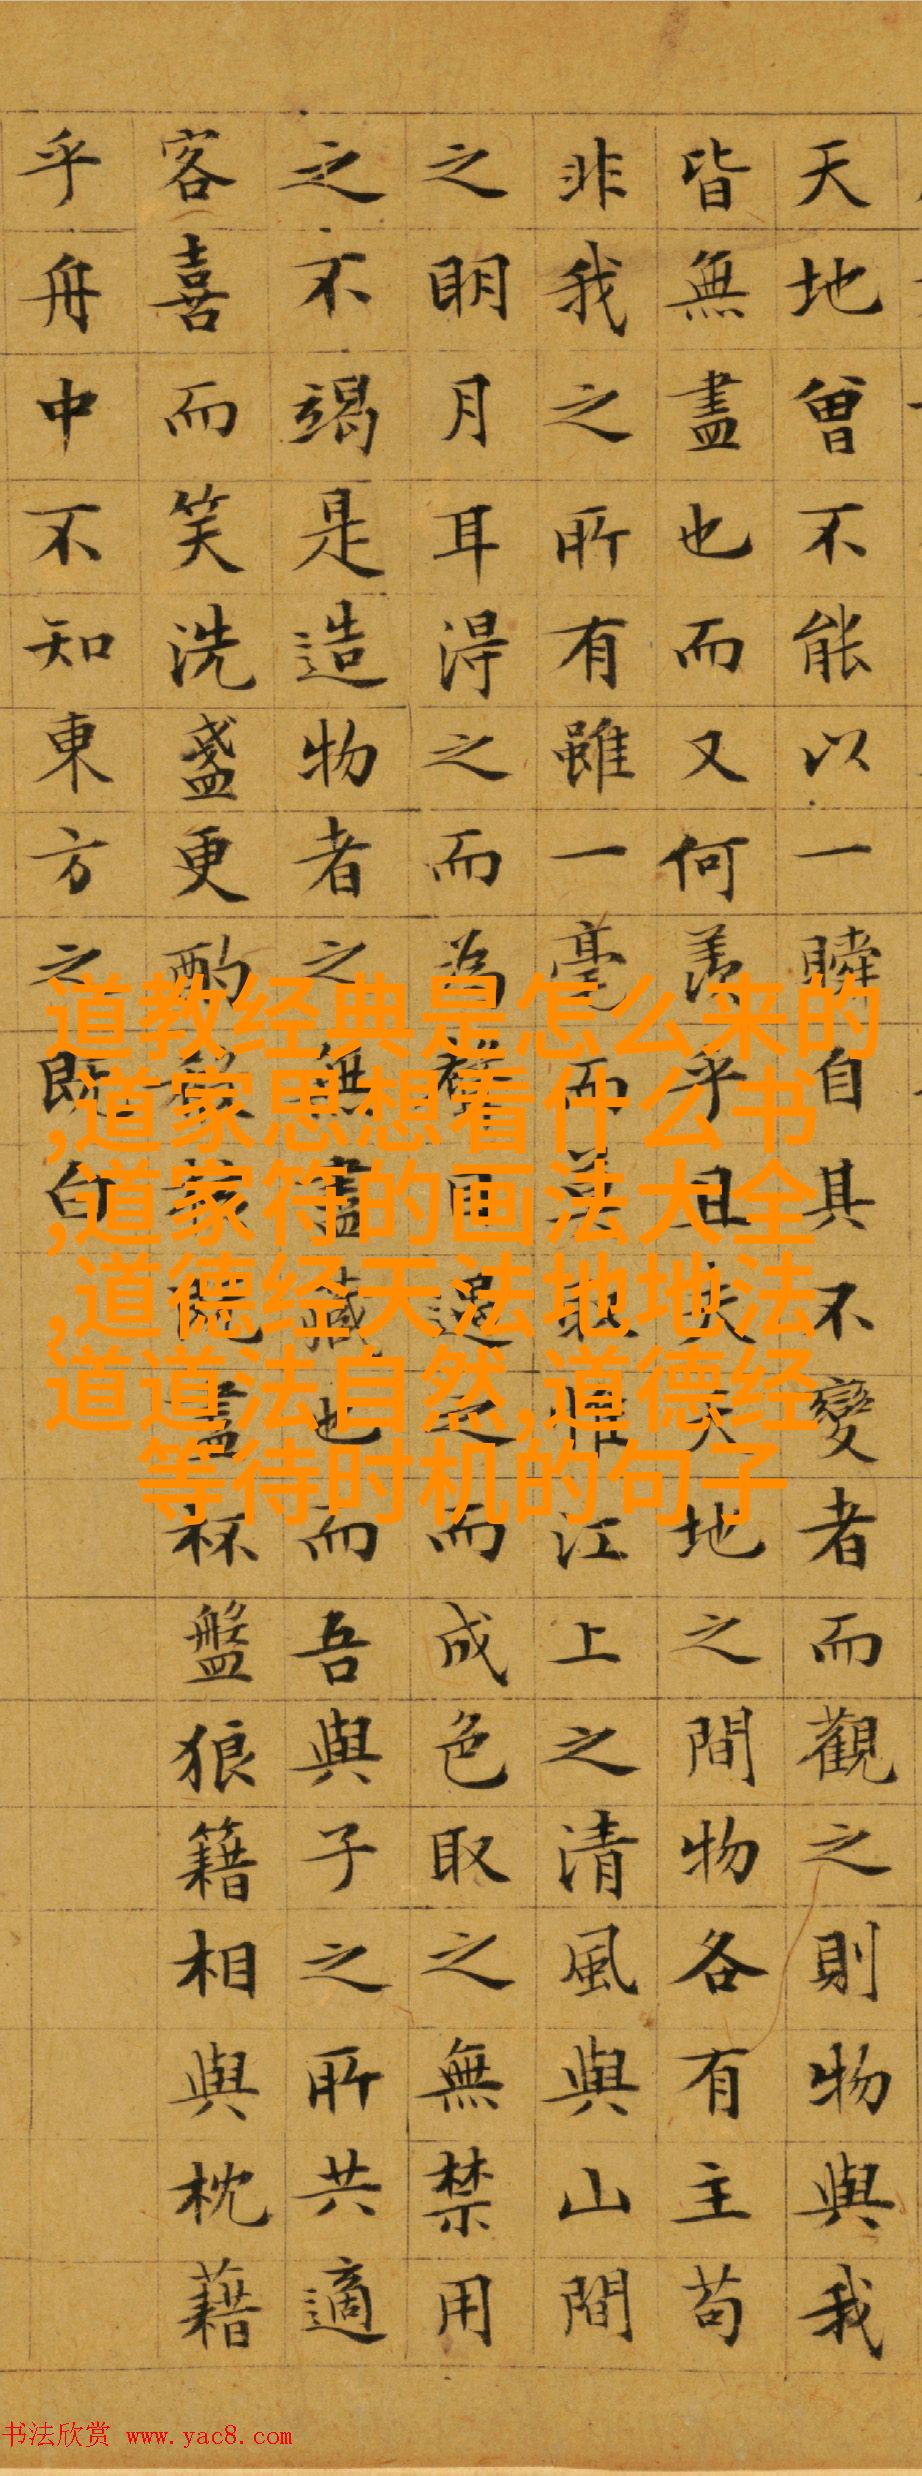 天地曾不能以一瞬自其不變者而觀之則物與我
皆無盡也而又何羨乎且夫天地之間物各有主苟
非我之所有雖一毫而莫取惟江上之清風與山間
之明月耳得之而為聲目遇之而成色取之無禁用
之不竭是造物者之無盡藏也而吾與子之所共適
客喜而笑洗盞更酌肴核既盡杯盤狼籍相與枕藉
乎舟中不知東方之既白
道教经典是怎么来的
,道家思想看什么书
,道家符的画法大全
,道德经天法地地法
道道法自然,道德经
等待时机的句子
书法欣赏 www.yac8.com